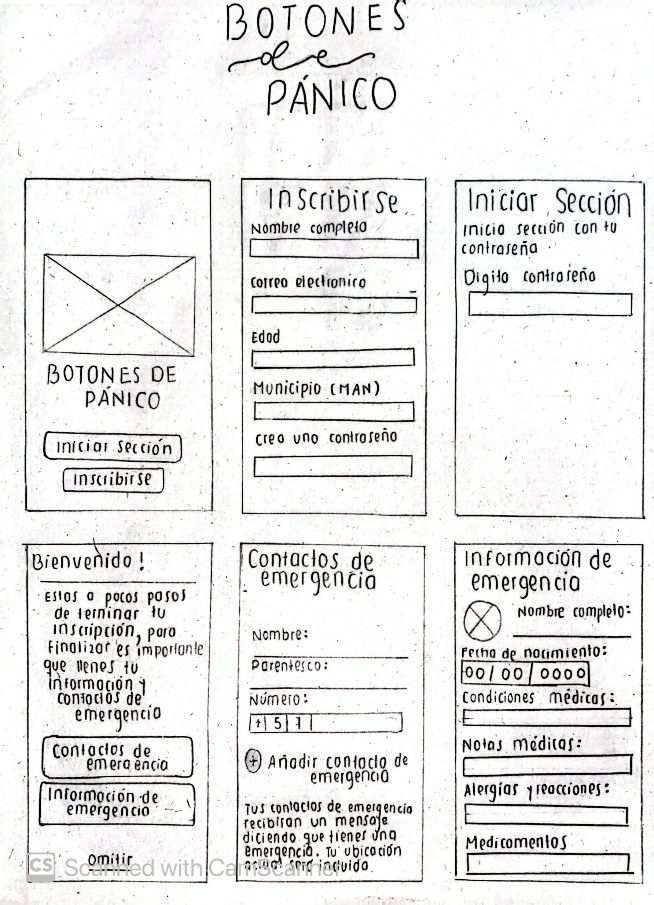 BOTONES
de
PÁNICO
BOTONES DE
PÁNICO
Iniciar Sección
Inscribirse
Inscribirse
Nombre completo
Correo electronico
Edad
Municipio (MAN)
Crea una contraseña
Iniciar Sección
Inicia sección con tu
contraseña
Digita contraseña
Bienvenido!
Estas a pocos pasos
de terminar tu
inscripción, para
finalizar es importante
que llenes tu
información y
contactos de
emergencia
Contactos de
emergencia
Información de
emergencia
Omitir
Contactos de
emergencia
Nombre:
Parentesco:
Número:
+57
Añadir contacto de
emergencia
Tus contactos de emergencia
recibiran un mensaje
diciendo que tienes una
emergencia. Tu ubicación
actual será incluida
Información de
emergencia
Nombre completo:
Fecha de nacimiento:
00/00/0000
Condiciones médicas:
Notas médicas:
Alergias y reacciones:
Medicamentos
CS Scanned with CamScanner